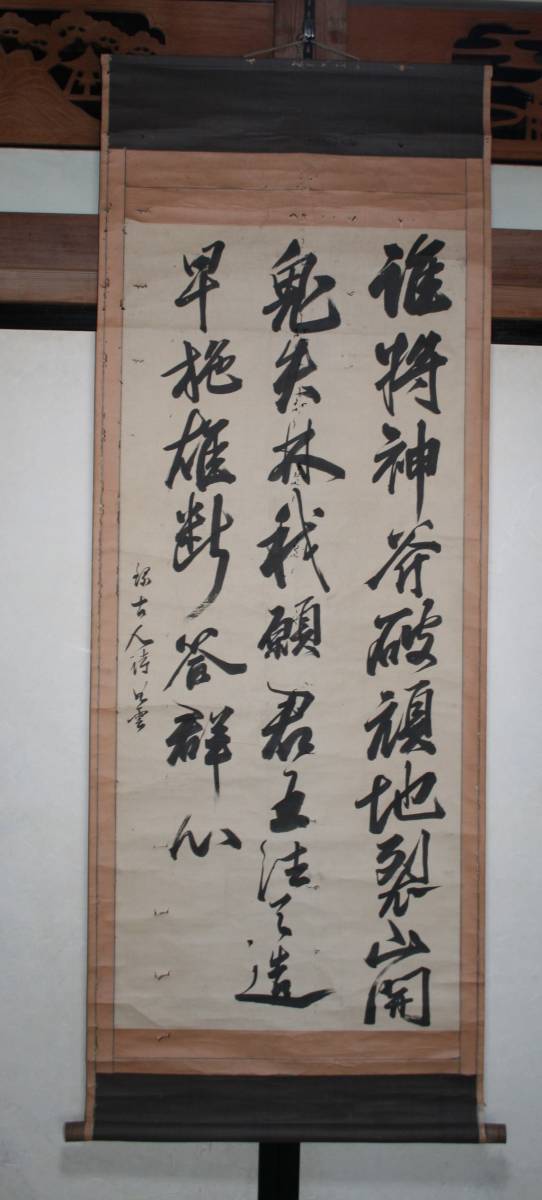 誰將神斧破頑地裂山開
鬼失林我願君王法天造
早施雄斷答群心
錄古人詩 雲